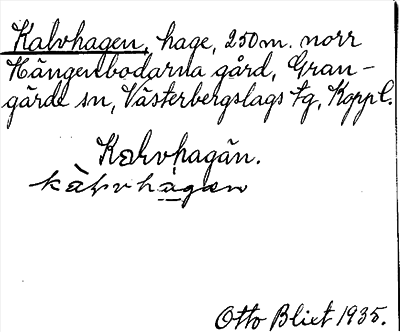 Kalvhagen, hage, 250 m. norr
Hängenbodarna gård, Gran-
gärde sn, Västerbergslags tg, Koppl.
Kalvhagän.
kàlvhàgen
Otto Blixt 1935.